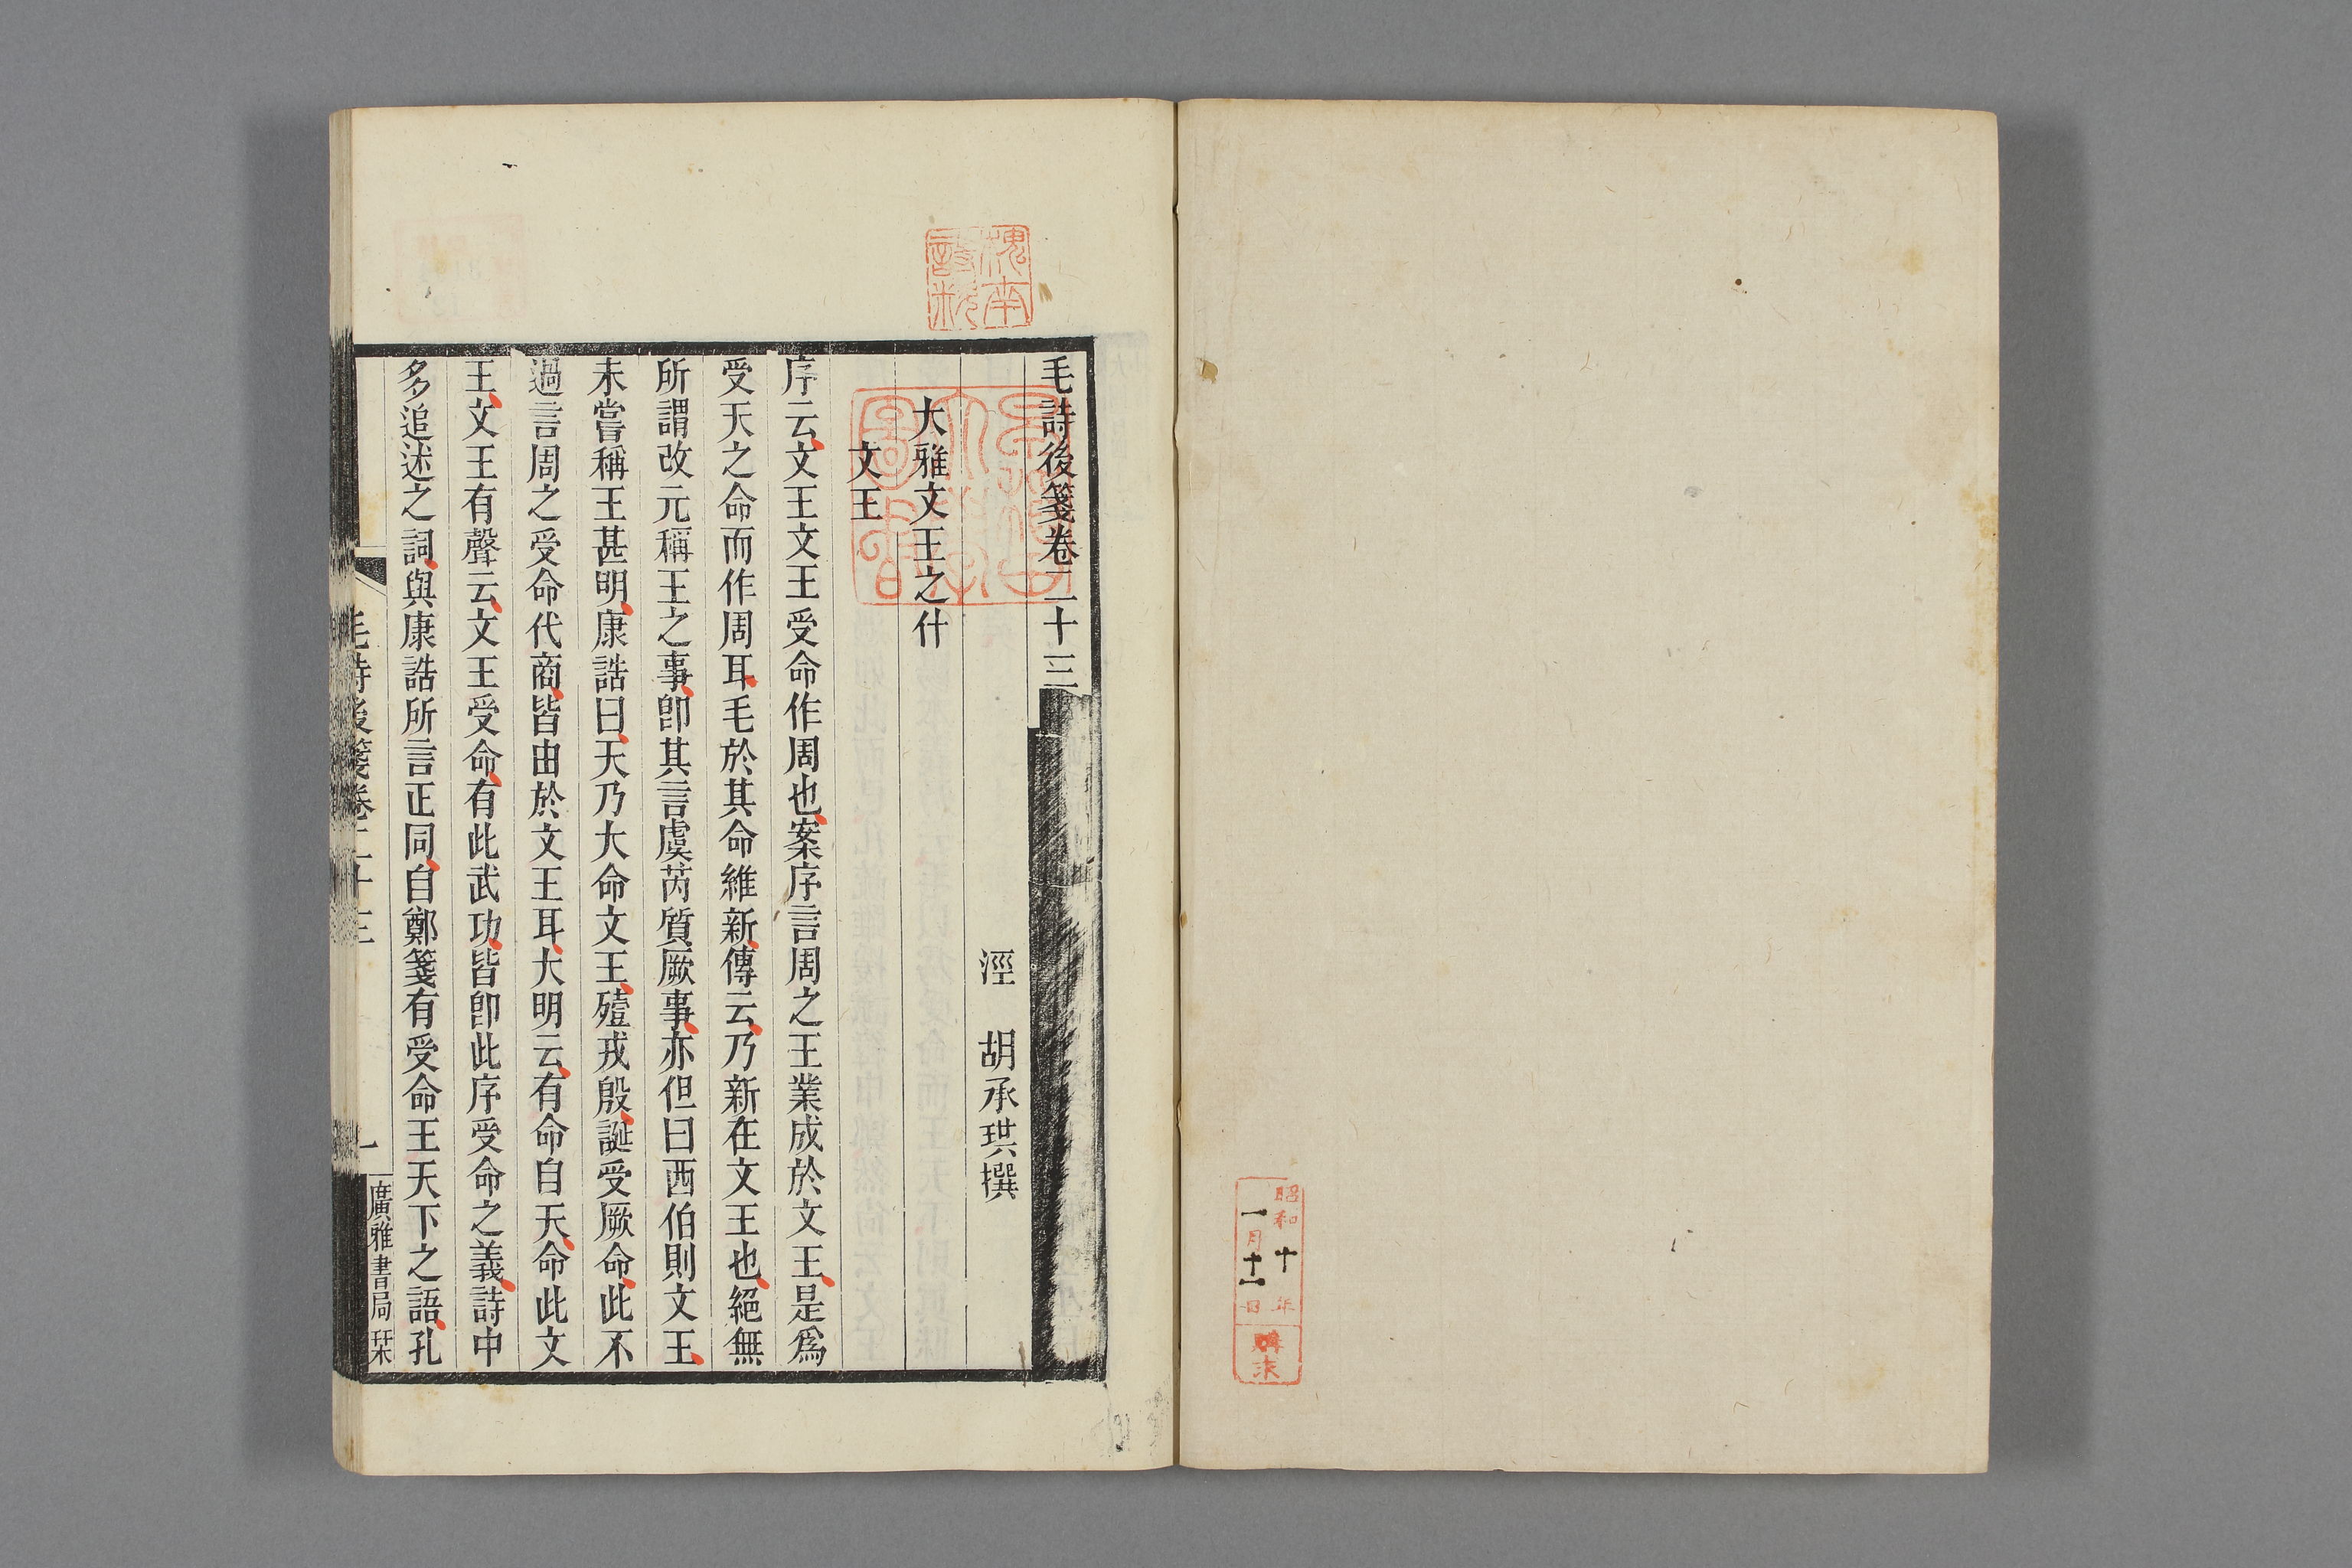 昭和十年
一月十一日
購求
毛詩後箋卷二十三
涇　胡承珙撰
大雅文王之什
文王
序云文王文王受命作周也案序言周之王業成於文王是爲
受天之命而作周耳毛於其命維新傳云乃新在文王也絕無
所謂改元稱王之事卽其言虞芮質厥事亦但曰西伯則文王
未嘗稱王甚明康誥曰天乃大命文王殪戎殷誕受厥命此不
過言周之受命代商皆由於文王耳大明云有命自天命此文
王文王有聲云文王受命有此武功皆卽此序受命之義詩中
多追述之詞與康誥所言正同自鄭箋有受命王天下之語孔
毛詩後箋卷二十三
一
廣雅書局栞